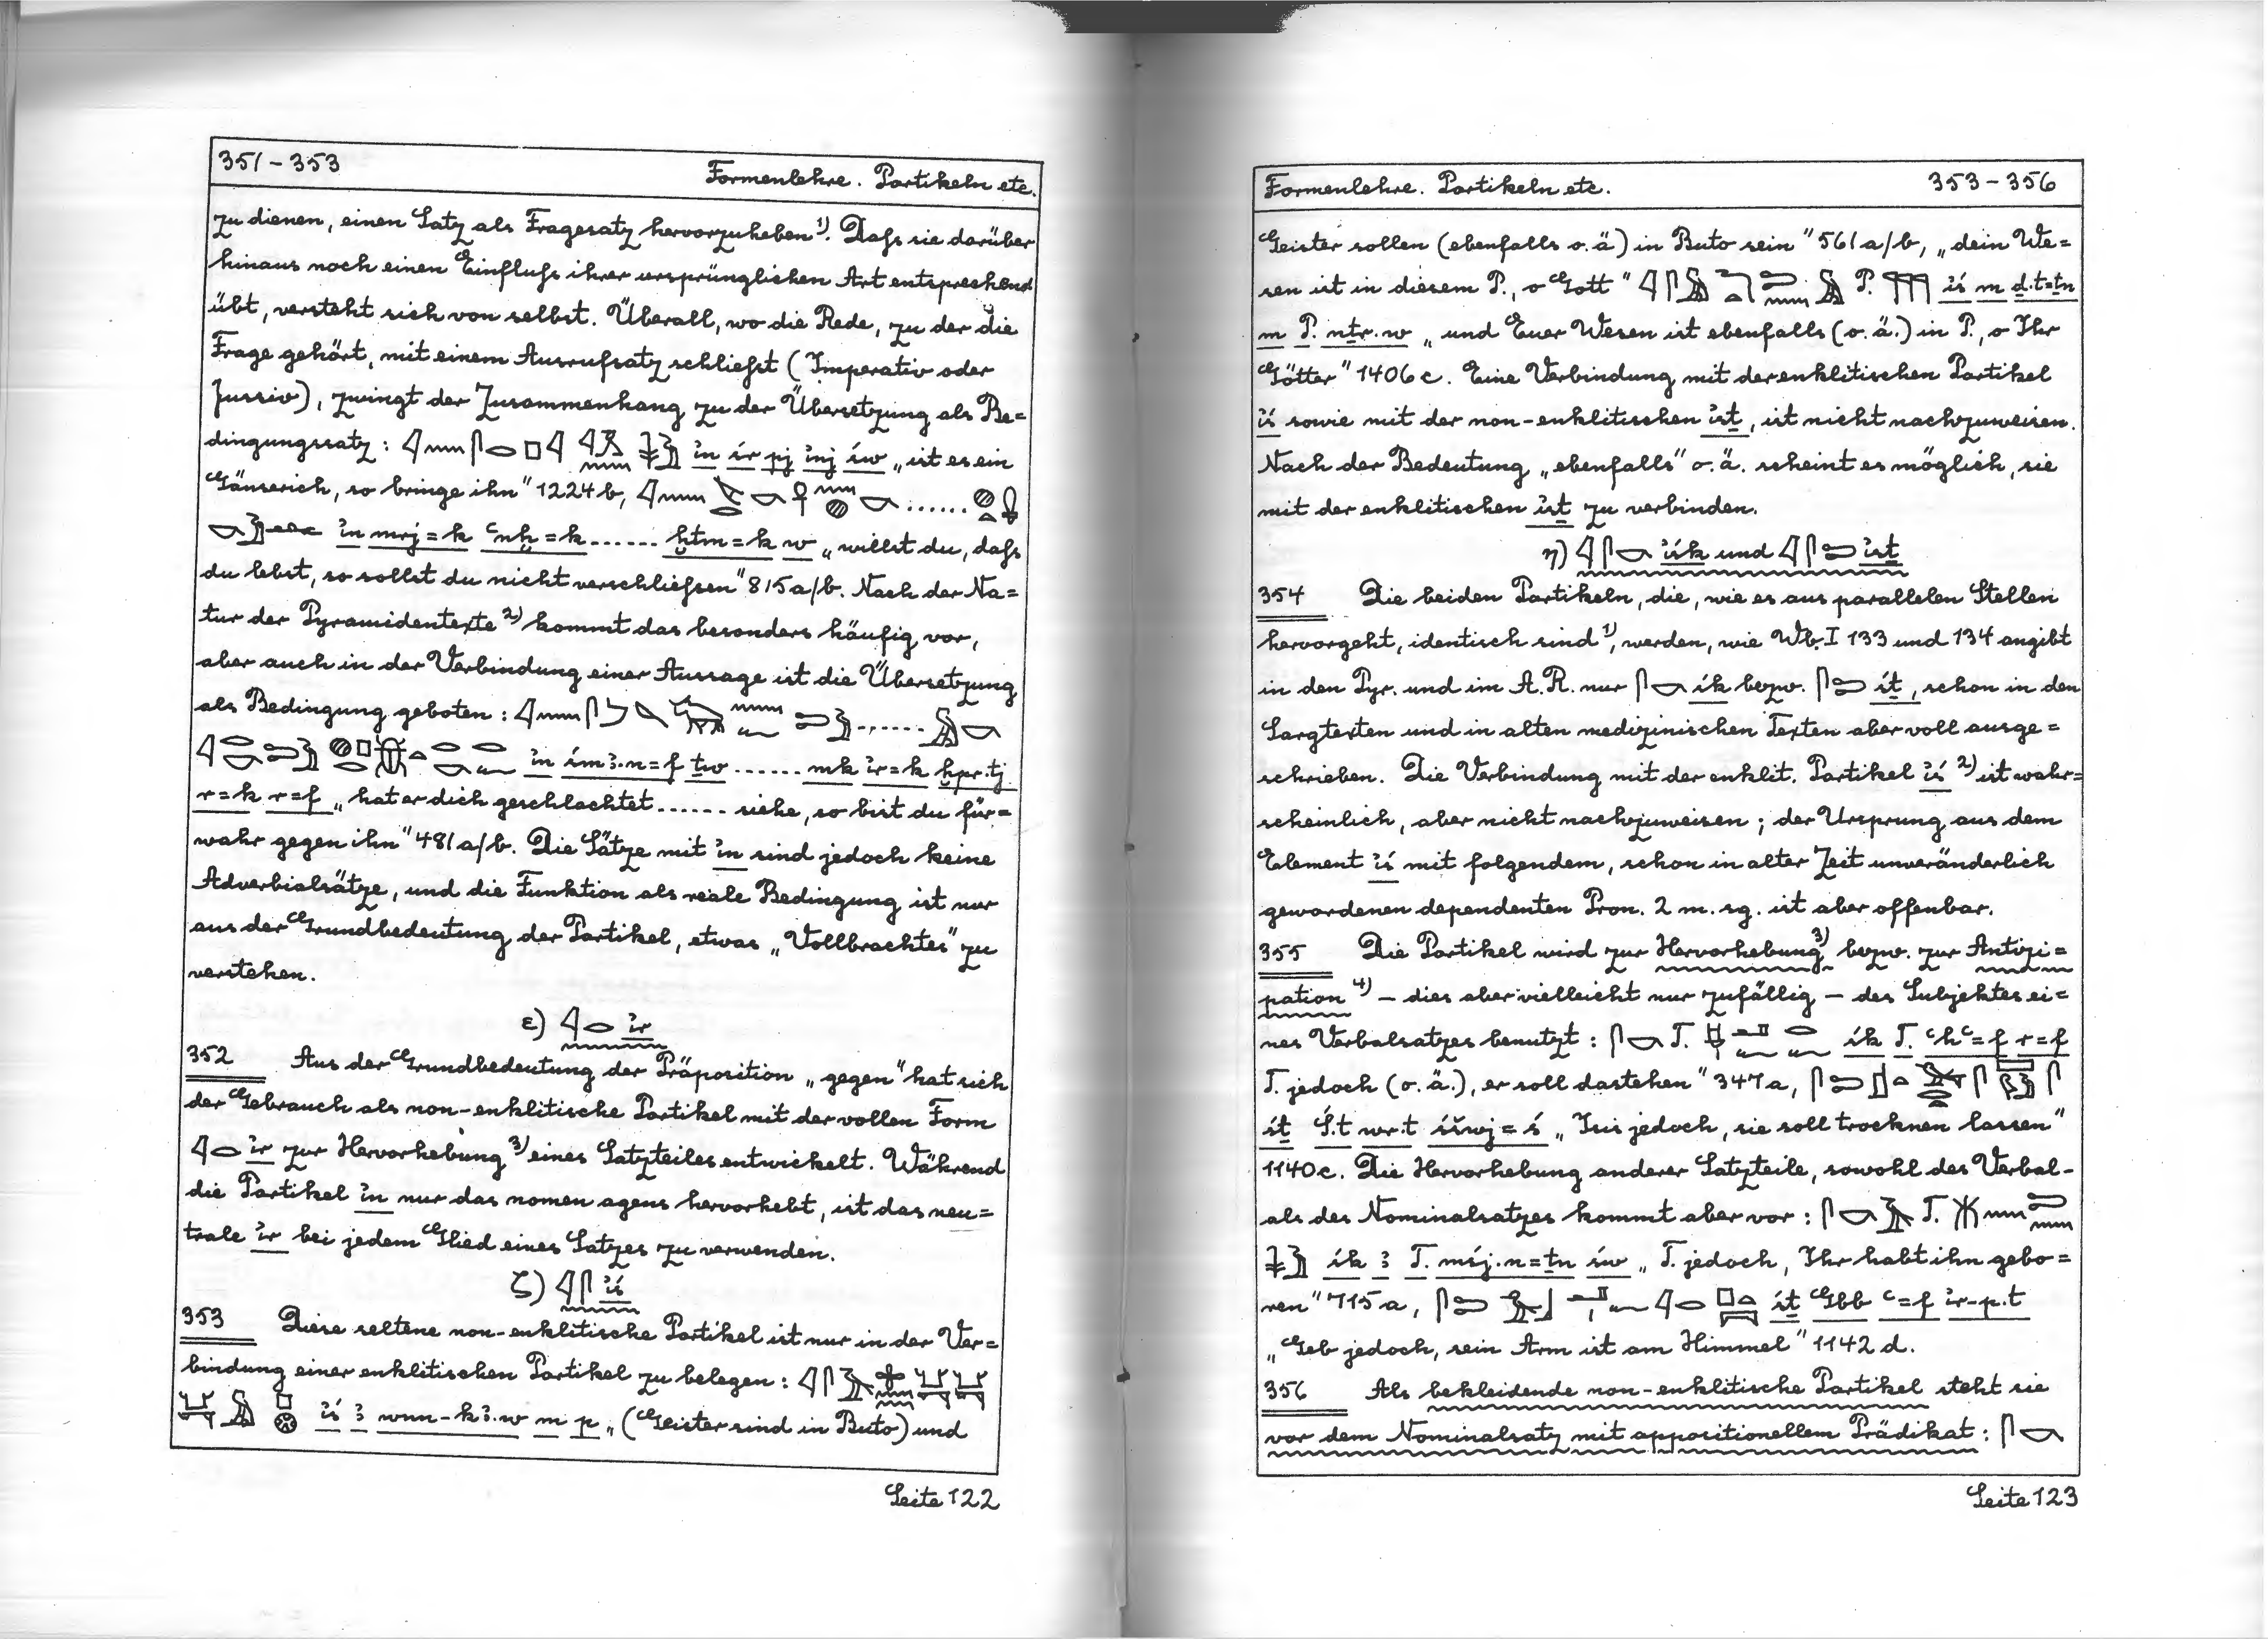 351-353 Formenlehre. Partikeln etc.
zu dienen, einen Satz als Fragesatz hervorzuheben ¹⁾. Daß sie darüber
hinaus noch einen Einfluß ihrer ursprünglichen Art entsprechend
übt, versteht sich von selbst. Überall, wo die Rede, zu der die
Frage gehört, mit einem Ausrufsatz schließt (Imperativ oder
Jussiv), zwingt der Zusammenhang zu der Übersetzung als Be=
dingungssatz: ỉn ír pj ỉnj św „ist es ein
Gänserich, so bringe ihn" 1224b, ......
ỉn mrj=k ꜥnḫ=k ...... ḫtm=k w „willst du, daß
du lebst, so sollst du nicht verschließen" 815a/b. Nach der Na=
tur der Pyramidentexte ²⁾ kommt das besonders häufig vor,
aber auch in der Verbindung einer Aussage ist die Übersetzung
als Bedingung geboten: ......
ỉn śmꜣ.n=f ṯw ...... mk ỉr=k ḫpr.tj
r=k r=f „hat er dich geschlachtet ...... siehe, so bist du für=
wahr gegen ihn" 481a/b. Die Sätze mit ỉn sind jedoch keine
Adverbialsätze, und die Funktion als reale Bedingung ist nur
aus der Grundbedeutung der Partikel, etwas „Vollbrachtes" zu
verstehen.
ε) ỉr
352 Aus der Grundbedeutung der Präposition „gegen" hat sich
der Gebrauch als non-enklitische Partikel mit der vollen Form
ỉr zur Hervorhebung ³⁾ eines Satzteiles entwickelt. Während
die Partikel ỉn nur das nomen agens hervorhebt, ist das neu=
trale ỉr bei jedem Glied eines Satzes zu verwenden.
ζ) ỉś
353 Diese seltene non-enklitische Partikel ist nur in der Ver=
bindung einer enklitischen Partikel zu belegen:
ỉś ꜣ wnn-kꜣ.w m p „(Geister sind in Buto) und
Seite 122
Formenlehre. Partikeln etc. 353-356
Geister sollen (ebenfalls o.ä) in Buto sein" 561a/b, „dein We=
sen ist in diesem P., o Gott" P. ỉś m ḏ.t=ṯn
m P. nṯr.w „und Euer Wesen ist ebenfalls (o.ä.) in P., o Ihr
Götter" 1406c. Eine Verbindung mit der enklitischen Partikel
ỉś sowie mit der non-enklitischen ỉśṯ, ist nicht nachzuweisen.
Nach der Bedeutung „ebenfalls" o.ä. scheint es möglich, sie
mit der enklitischen ỉśṯ zu verbinden.
η) ỉśk und ỉśṯ
354 Die beiden Partikeln, die, wie es aus parallelen Stellen
hervorgeht, identisch sind ¹⁾, werden, wie Wb. I 133 und 134 angibt
in den Pyr. und im A.R. nur śk bezw. śṯ, schon in den
Sargtexten und in alten medizinischen Texten aber voll ausge=
schrieben. Die Verbindung mit der enklit. Partikel ỉś ²⁾ ist wahr=
scheinlich, aber nicht nachzuweisen; der Ursprung aus dem
Element ỉś mit folgendem, schon in alter Zeit unveränderlich
gewordenen dependenten Pron. 2 m. sg. ist aber offenbar.
355 Die Partikel wird zur Hervorhebung ³⁾ bezw. zur Antizi=
pation ⁴⁾ – dies aber vielleicht nur zufällig – des Subjektes ei=
nes Verbalsatzes benutzt: T. śk T. ꜥḥꜥ=f r=f
T. jedoch (o.ä.), er soll dastehen" 347a,
śṯ Ś.t wr.t śšwj=ś „Isis jedoch, sie soll trocknen lassen"
1140c. Die Hervorhebung anderer Satzteile, sowohl des Verbal-
als des Nominalsatzes kommt aber vor: T.
śk ꜣ T. mśj.n=ṯn św „T. jedoch, Ihr habt ihn gebo=
ren" 715a, śṯ Gbb ꜥ=f ỉr-p.t
„Geb jedoch, sein Arm ist am Himmel" 1142d.
356 Als bekleidende non-enklitische Partikel steht sie
vor dem Nominalsatz mit appositionellem Prädikat:
Seite 123